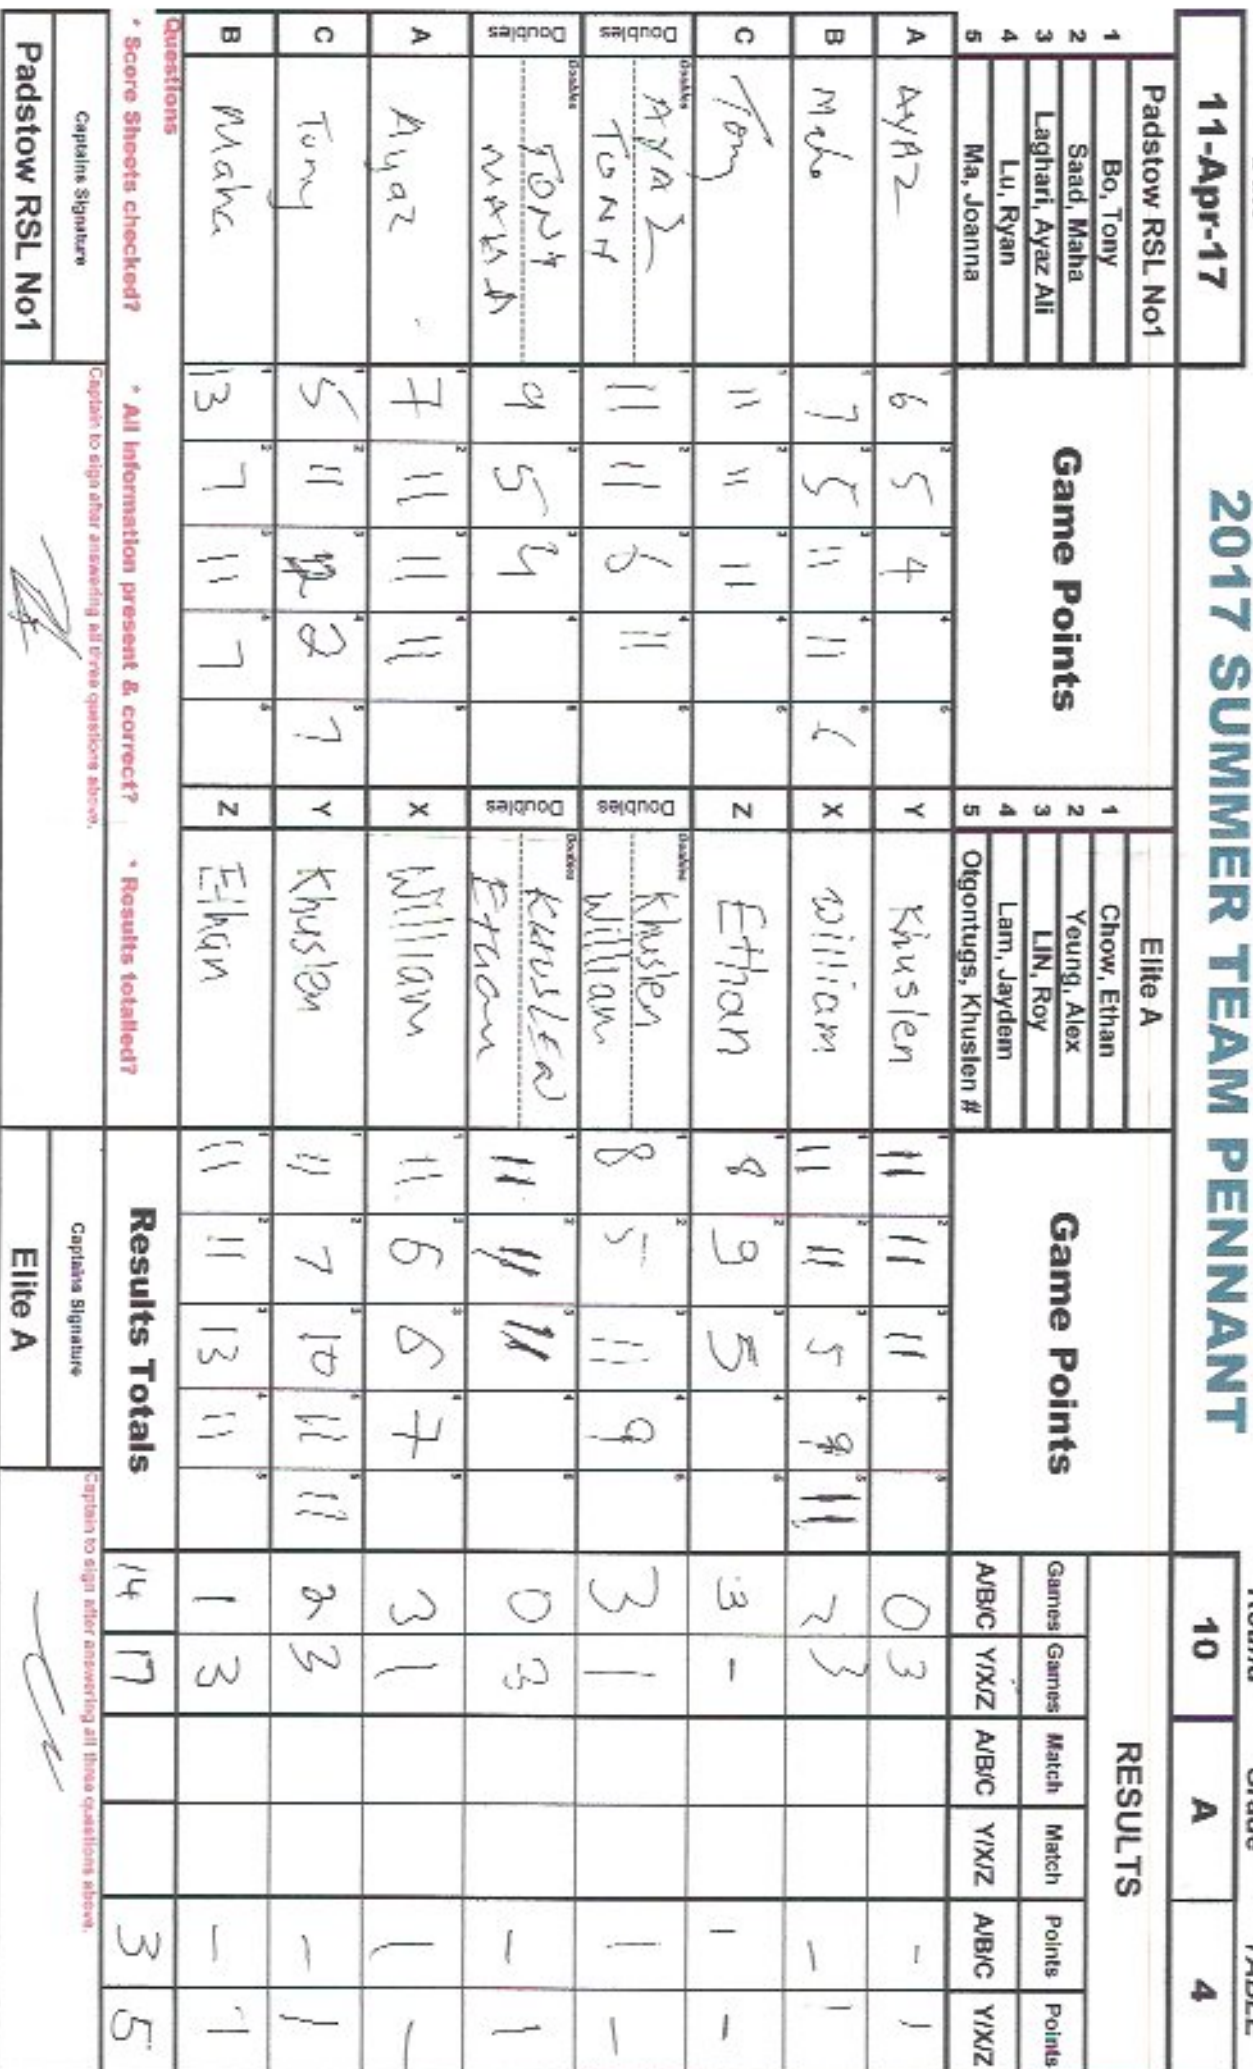 11-Apr-17
2017 SUMMER TEAM PENNANT
10 A 4
Padstow RSL No1 Game Points Elite A Game Points RESULTS
1 Bo, Tony 1 Chow, Ethan
2 Saad, Maha 2 Yeung, Alex
3 Laghari, Ayaz Ali 3 LIN, Roy
4 Lu, Ryan 4 Lam, Jaydem
5 Ma, Joanna 5 Otgontugs, Khuslen #
Games Games Match Match Points Points
A/B/C Y/X/Z A/B/C Y/X/Z A/B/C Y/X/Z
A AYAZ 6 5 4 Y Khuslen 11 11 11 0 3 - 1
B Maha 7 5 11 11 6 X William 11 11 5 9 11 2 3 - 1
C Tony 11 11 11 Z Ethan 8 9 5 3 - 1 -
Doubles AYAZ TONY 11 11 6 11 Doubles Khuslen William 8 5 11 9 3 1 1 -
Doubles TONY MAHA 9 5 9 Doubles KHUSLEN Ethan 11 11 11 0 3 - 1
A Ayaz 7 11 11 11 X William 11 6 6 7 3 1 1 -
C Tony 5 11 12 2 7 Y Khuslen 11 7 10 11 11 2 3 - 1
B Maha 13 7 11 7 Z Ethan 11 11 13 11 1 3 - 1
Questions
* Score Sheets checked? * All information present & correct? * Results totalled? Results Totals 14 17 3 5
Captains Signature Captain to sign after answering all three questions above. Captains Signature Captain to sign after answering all three questions above.
Padstow RSL No1 Elite A